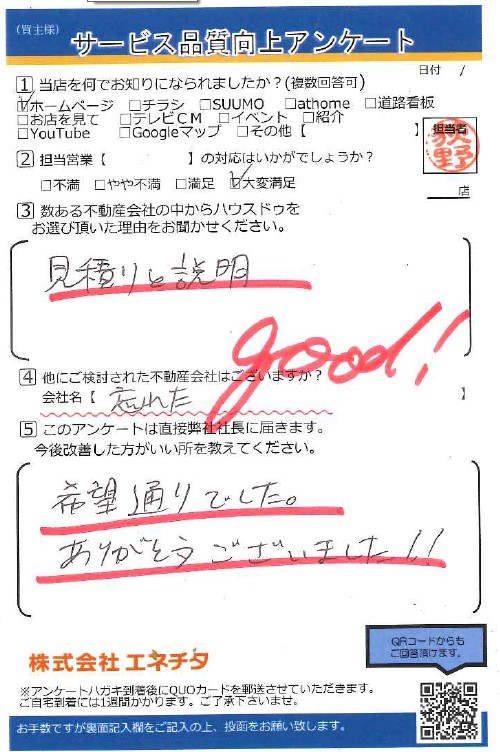 (買主様)
サービス品質向上アンケート
日付 /
1 当店を何でお知りになられましたか?(複数回答可)
☑ホームページ □チラシ □SUUMO □athome □道路看板
□お店を見て □テレビCM □イベント □紹介
□YouTube □Googleマップ □その他【 】
担当者
荻野
2 担当営業【 】の対応はいかがでしょうか?
□不満 □やや不満 □満足 ☑大変満足
店
3 数ある不動産会社の中からハウスドゥを
お選び頂いた理由をお聞かせください。
見積りと説明
good!
4 他にご検討された不動産会社はございますか?
会社名【 忘れた 】
5 このアンケートは直接弊社社長に届きます。
今後改善した方がいい所を教えてください。
希望通りでした。
ありがとうございました!!
QRコードからも
ご回答頂けます。
株式会社 エネチタ
※アンケートハガキ到着後にQUOカードを郵送させていただきます。
ご自宅到着には1週間かかります。ご了承下さいませ。
お手数ですが裏面記入欄をご記入の上、投函をお願い致します。